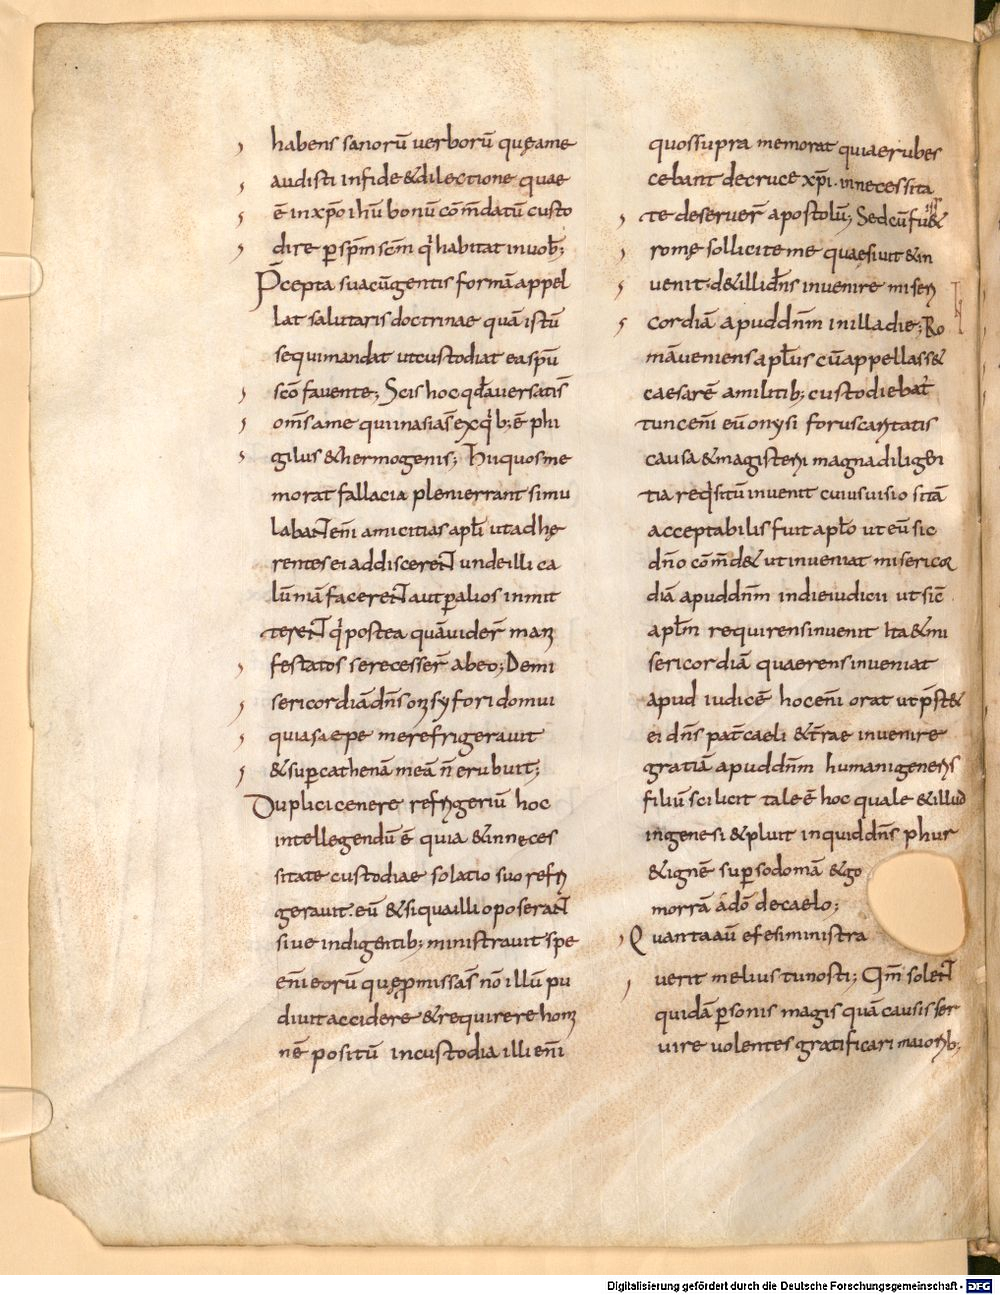 habens sanorū uerborū quęame
audisti infide &dilectione quae
ē inxp̄o ihū bonū com̄datū custo
dire p̄ sp̄m sc̄m qͥ habitat inuob̄;
P̄cepta suacūgentis formā appel
lat salutaris doctrinae quā istū
sequimandat utcustodiat ea sp̄u
sc̄o fauente; Scis hoc qd̄ auersati s̄
om̄s ame quiinasia s̄ exqͥb; ē phi
gilus &hermogenis; Hii quos me
morat fallacia pleni errant simu
labant eni̅ amicitias apl̄i utadhę
rentes ei addiscerent unde illi ca
lūniā facerent aut p̄alios inmit
terent qͥ postea quā uider̄ mani
festatos se recesser̄ abeo; Demi
sericordiā dn̄s onisyfori domui
quia saepe me refrigerauit
&sup̄ cathenā meā n̄ erubuit;
Duplici cenere refrigeriū hoc
intellegendū ē quia &inneces
sitate custodiae solatio suo refri
gerauit eū &siqua illi oposerant
siue indigentib; ministrauit spe
eni̅ eorū quęp̄missa s̄ nō illū pu
duit accidere &requirere homi
nē positū incustodia illi eni̅
quos supra memorat quia erubes
cebant decruce xp̄i · innecessita
te deseruer̄ apostolū; Sed cū fuiss&
romę sollicite me quaesiuit &in
uenit · d& illi dn̄s inuenire miseri
cordiā apud dn̄m in illa die; Ro
mā ueniens apl̄us cū appellass&
caesarē amilitib; custodiebat̄
tunc eni̅ eū onysiforus caritatis
causa &magisterii magna diligen
tia reqͥsitū inuenit cuius uisio sitā
acceptabilis fuit apl̄o ut eū sic
dn̄o com̄d& ut inueniat misericor
diā apud dn̄m in die iudicii ut sic̄
apl̄m requirens inuenit Ita &mi
sericordiā quaerens inueniat
apud iudicē hoc eni̅ orat ut p̄st&
ei dn̄s pat̄ caeli &t̄rae inuenire
gratiā apud dn̄m humani generis
filiū scilicit tale ē hoc quale &illud
ingenesi &pluit inquid dn̄s phur
&ignē sup̄ sodomā &go
morrā ádō decaelo;
Quanta aū efesi ministra
uerit melius tu nosti; Qm̄ solent
quidā p̄sonis magis quā causis ser
uire uolentes gratificari maiorib;
Digitalisierung gefördert durch die Deutsche Forschungsgemeinschaft - DFG